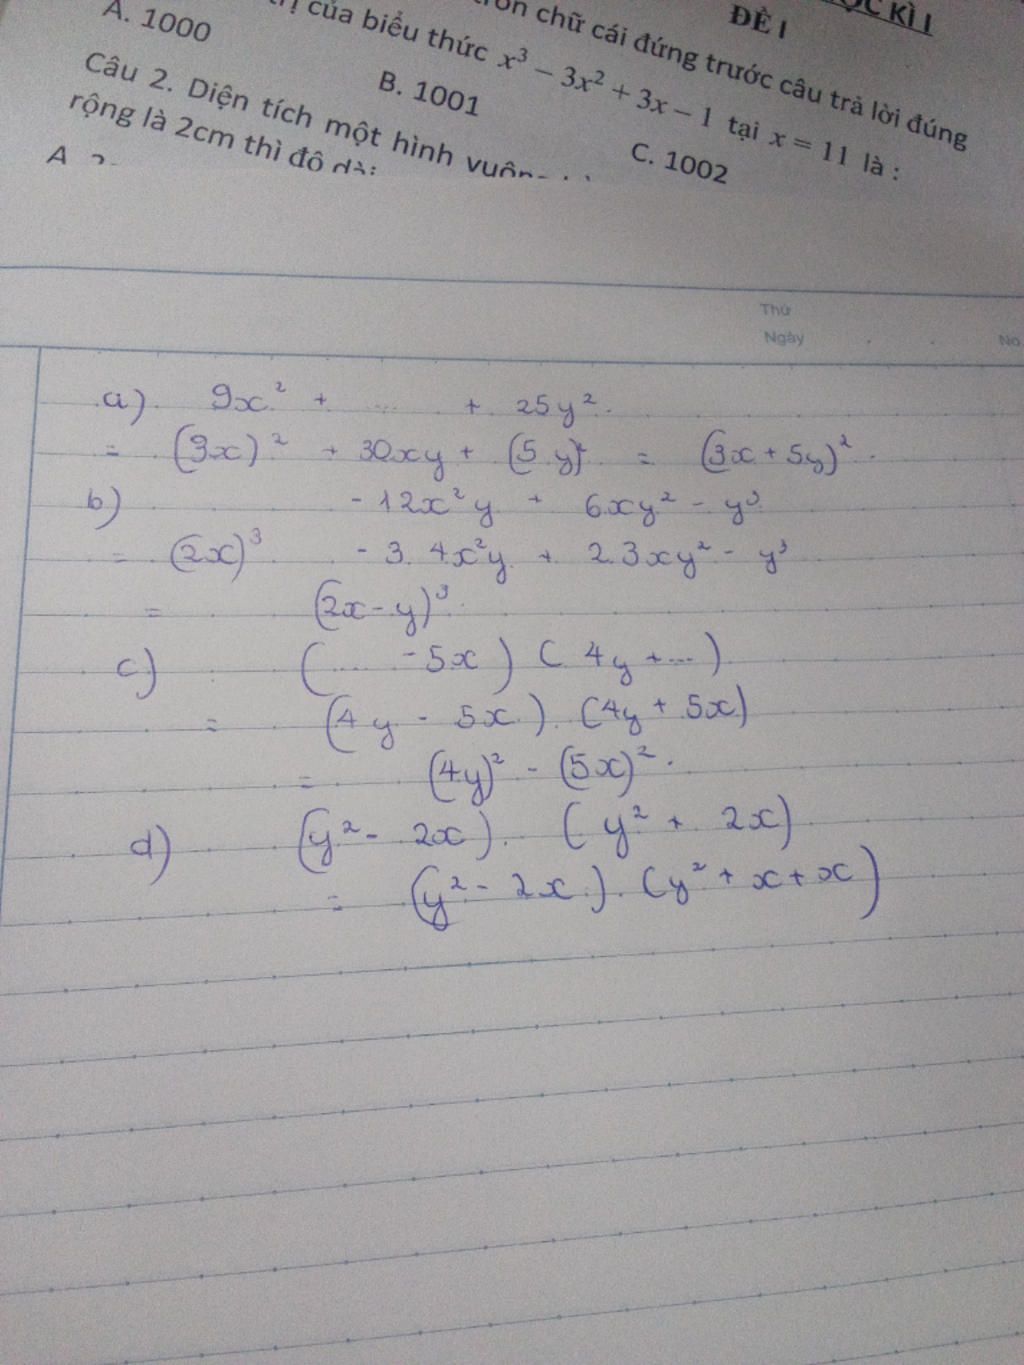 ỌC KÌ I
ĐỀ I
chữ cái đứng trước câu trả lời đúng
của biểu thức x³ − 3x² + 3x − 1 tại x = 11 là :
A. 1000 B. 1001 C. 1002
Câu 2. Diện tích một hình vuông
rộng là 2cm thì độ dài
A
Thứ
Ngày No
a) 9x² + ... + 25y².
= (3x)² + 30xy + (5y)² = (3x + 5y)².
b) - 12x²y + 6xy² - y³
= (2x)³ - 3. 4x²y + 2.3xy² - y³
= (2x - y)³.
c) (.... - 5x) (4y + ...)
= (4y - 5x). (4y + 5x)
= (4y)² - (5x)².
d) (y² - 2x). (y² + 2x)
= (y² - 2x). (y² + x + x)